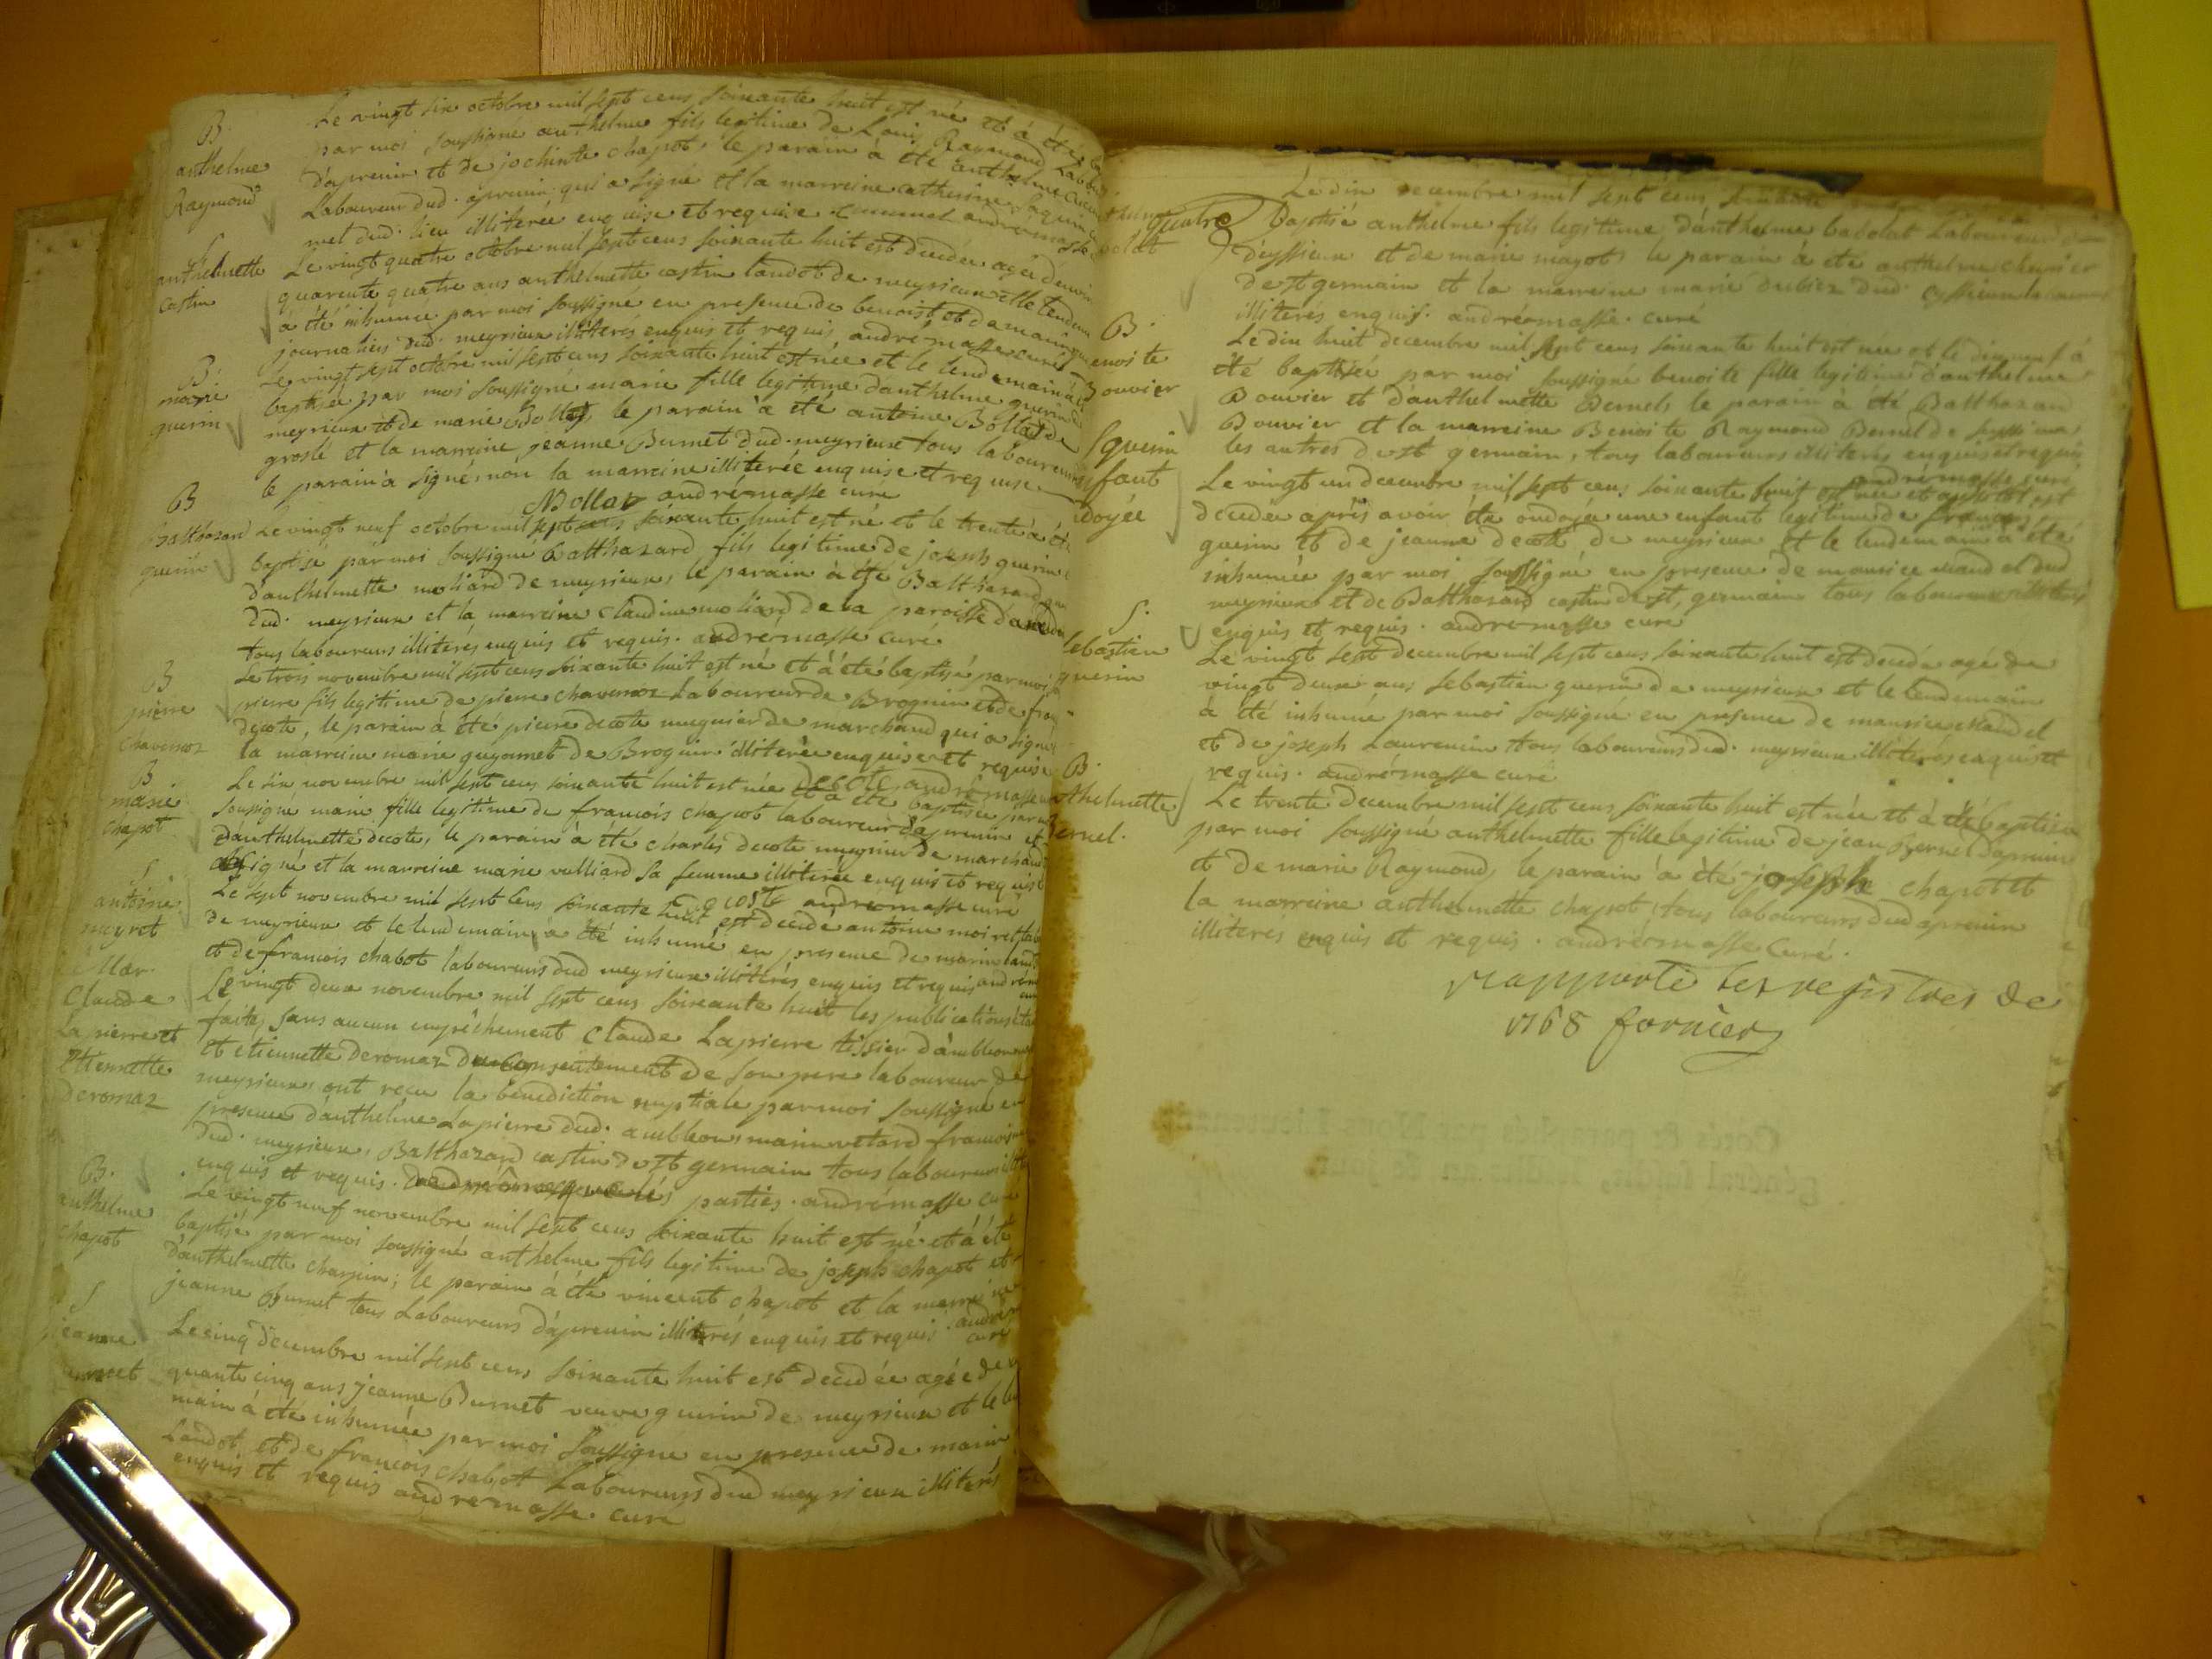 B
anthelme
Raymond
Le vingt six octobre mil sept cens soixante huit est né et à été
par moi soussigné anthelme fils legitime de Louis Raymond
d'aprenin et de jochinte chapot, le parain à été anthelme
Laboureur dud. aprenin qui a signé et la marreine catherine
met dud. lieu illiterée enquise et requise. andrémasse
S
anthelmette
castin
Le vingt quatre octobre mil sept cens soixante huit est decedée agée denviron
quarente quatre ans anthelmette castin landot de meyrieux et le lendemain
à été inhumée par moi soussigné en presence de benoist et de
journaliers dud. meyrieux illiterés enquis et requis andrémasse curé
B
marie
guerin
Le vingt sept octobre mil sept cens soixante huit est née et le lendemain à été
baptisée par moi soussigné marie fille legitime danthelme guerin de
meyrieux et de marie Bollaz, le parain à été antoine Bollet de
groslé et la marreine jeanne Burnet dud. meyrieux tous laboureurs
le parain à signé, non la marreine illiterée enquise et requise
ABollaz andrémasse curé
B
Balthazard
guerin
Le vingt neuf octobre mil sept cens soixante huit est né et le trente à été
baptisé par moi soussigné Balthazard fils legitime de joseph guerin
d'anthelmette moliard de meyrieux, le parain à été Balthazard
dud. meyrieux et la marreine claudine moliard de la paroisse
tous laboureurs illiterés enquis et requis. andrémasse curé
B
pierre
chavernoz
Le trois novembre mil sept cens soixante huit est né et à été baptisé par moi
pierre fils legitime de pierre chavernoz Laboureur de Brognin et de
decote, le parain à été pierre decote meunier de marchand qui a signé
la marreine marie guyonnet de Brognin illiterée enquise et requise
decote andrémasse
B
marie
chapot
Le six novembre mil sept cens soixante huit est née et à été baptisée par
soussigné marie fille legitime de francois chapot laboureur d'aprenin et
d'anthelmette decote, le parain à été charles decote meunier de marchand
signé et la marreine marie vulliard sa femme illiterée enquis et requis
decoste andrémasse curé
S
antoine
meyret
Le sept novembre mil sept cens soixante huit est decedé antoine
de meyrieux et le lendemain à été inhumé en presence de marin
et de francois chabot laboureurs dud meyrieux illiterés enquis et requis
Mar.
Claude
Lapierre et
Etiennette
deromaz
Le vingt deux novembre mil sept cens soixante huit les publications
faites sans aucun empêchement Claude Lapierre tissier d'ambleon
et etiennette deromaz du consentement de son pere laboureur de
meyrieux ont reçu la bénédiction nuptiale par moi soussigné en
presence d'anthelme Lapierre dud. ambleon,
dud. meyrieux, Balthazard castin de st germain tous laboureurs
enquis et requis. parties. andrémasse curé
B.
anthelme
chapot
Le vingt neuf novembre mil sept cens soixante huit est né et à été
baptisé par moi soussigné anthelme fils legitime de joseph chapot et
d'anthelmette charpin; le parain à été vincent chapot et la marreine
jeanne Burnet tous Laboureurs d'aprenin illiterés enquis et requis.
S
jeanne
burnet
Le cinq decembre mil sept cens soixante huit est decedée agée de
quante cinq ans jeanne Burnet veuve guerin de meyrieux et le
main à été inhumée par moi soussigné en presence de marin
Landot et de francois chabot Laboureurs dud meyrieux illiterés
enquis et requis andrémasse. curé
Le dix decembre mil sept cens soixante
baptisé anthelme fils legitime d'anthelme badolat Laboureur
d'eyssieux et de marie mayot, le parain à été anthelme chevrier
de st germain et la marreine marie dubiez dud. eyssieux
illiterés enquis. andrémasse. curé
B.
enoite
Bouvier
Le dix huit decembre mil sept cens soixante huit est née et le dix neuf à
été baptisée par moi soussigné benoite fille legitime d'anthelme
Bouvier et d'anthelmette Bernel, le parain à été Balthazard
Bouvier et la marreine Benoite Raymond Bernel de
les autres de st germain, tous laboureurs illiterés enquis et requis
andrémasse curé
S guerin
enfant
ondoyée
Le vingt un decembre mil sept cens soixante huit est née et aussitot est
decedée aprés avoir été ondoyée une enfant legitime de francois
guerin et de jeanne decote de meyrieux et le lendemain à été
inhumée par moi soussigné en presence de maurice mandel dud
meyrieux et de Balthazard castin de st. germain tous laboureurs illiterés
enquis et requis. andrémasse curé
S.
sebastien
guerin
Le vingt sept decembre mil sept cens soixante huit est decedé agé de
vingt deux ans sebastien guerin de meyrieux et le lendemain
à été inhumé par moi soussigné en presence de maurice mandel
et de joseph Laurencin tous laboureurs dud. meyrieux illiterés enquis et
requis. andrémasse curé
B.
anthelmette
Bernel.
Le trente decembre mil sept cens soixante huit est née et à été baptisée
par moi soussigné anthelmette fille legitime de jean Bernel d'aprenin
et de marie Raymond, le parain à été joseph chapot et
la marreine anthelmette chapot, tous laboureurs dud aprenin
illiterés enquis et requis. andrémasse Curé.
rapporté les registres de
1768 fornier